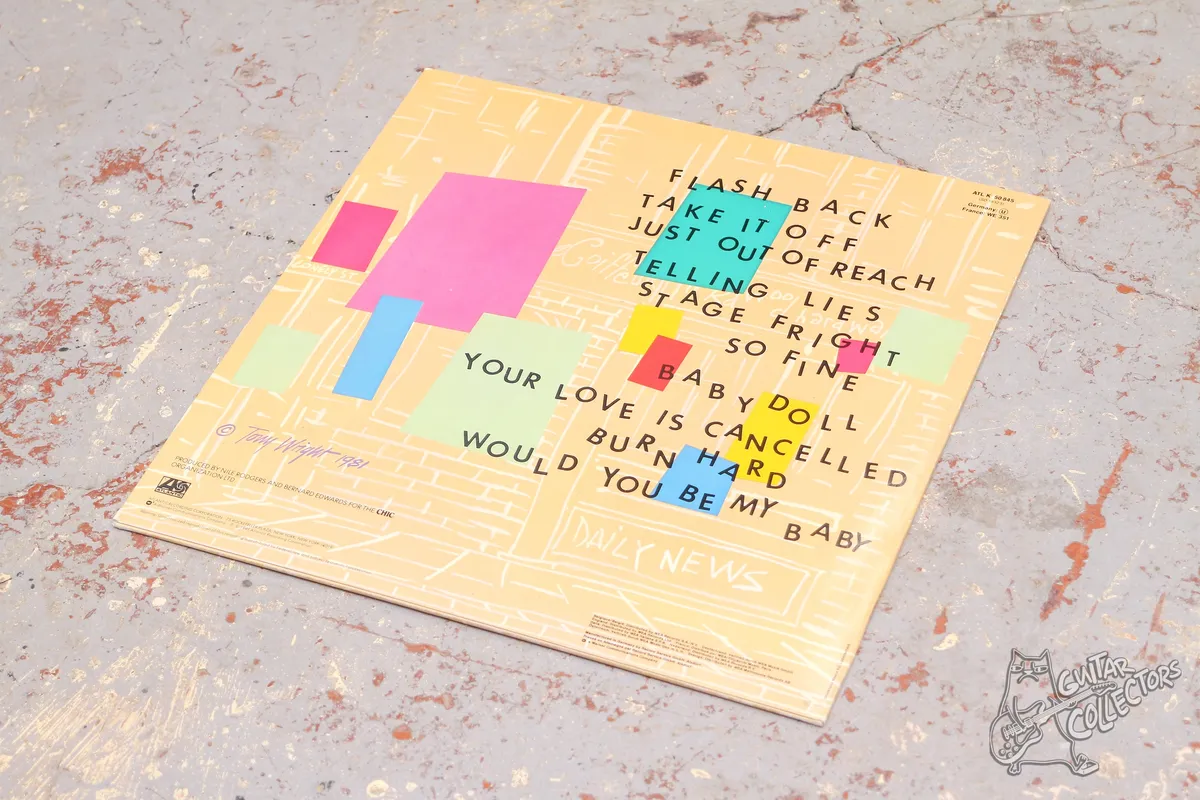 FLASH BACK
TAKE IT OFF
JUST OUT OF REACH
TELLING LIES
STAGE FRIGHT
SO FINE
BABY DOLL
YOUR LOVE IS CANCELLED
BURN HARD
WOULD YOU BE MY BABY
ATL K 50 845
Germany:
France: WE 351
LONELY ST
© Tony Wright 1981
PRODUCED BY NILE RODGERS AND BERNARD EDWARDS FOR THE CHIC
ORGANIZATION LTD
ATLANTIC
DAILY NEWS
GUITAR
COLLECTORS